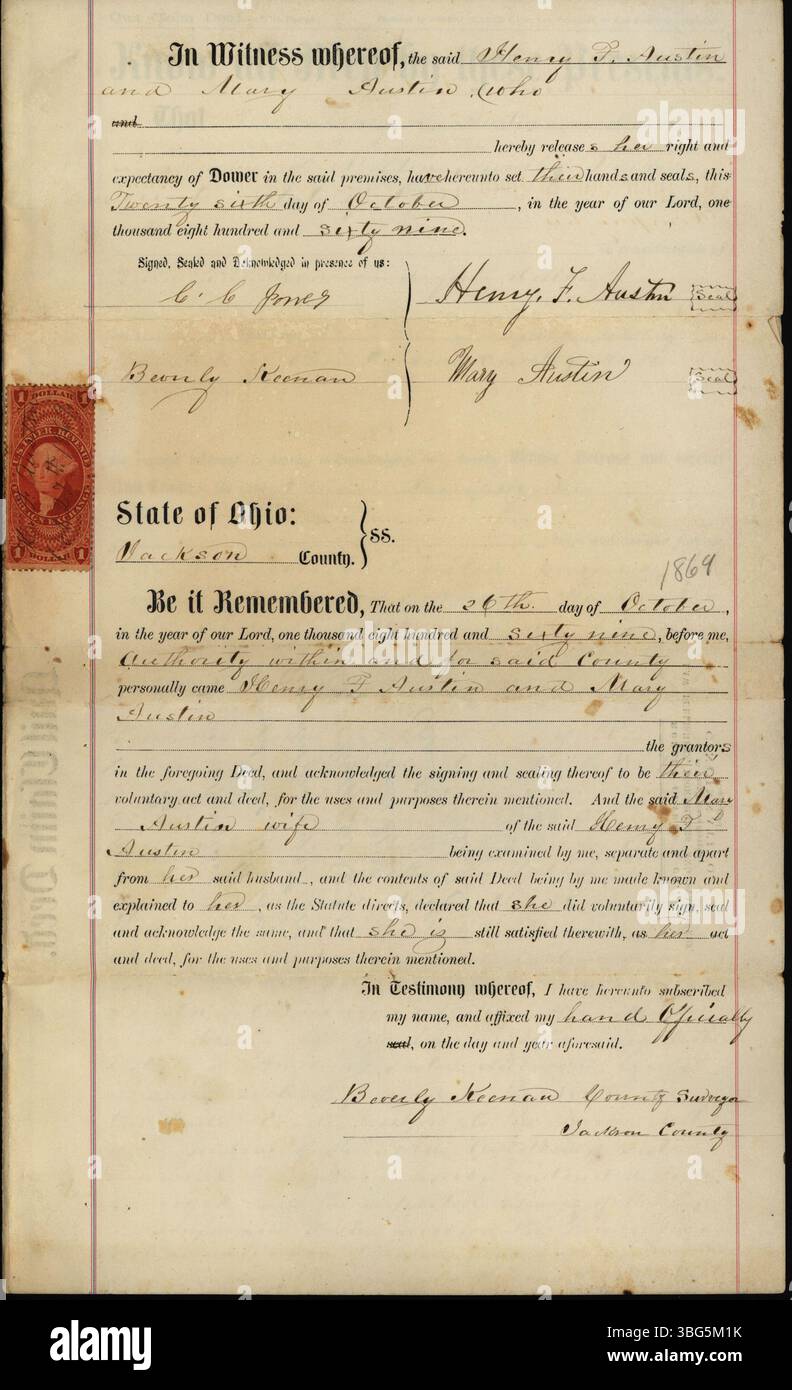 In Witness whereof, the said Henry F. Austin
and Mary Austin (who
and
hereby releases her right and
expectancy of Dower in the said premises, have hereunto set their hands and seals, this
Twenty sixth day of October, in the year of our Lord, one
thousand eight hundred and sixty nine.
Signed, Sealed and Acknowledged in presence of us:
C. C. Jones
Henry. F. Austin Seal
Beverly Keenan
Mary Austin Seal
1 DOLLAR 1
U.S. INTER. REVENUE
FOREIGN EXCHANGE
1 DOLLAR 1
State of Ohio:
Jackson County. } SS.
1869
Be it Remembered, That on the 26th. day of October,
in the year of our Lord, one thousand eight hundred and sixty nine, before me,
Authority within and for said County
personally came Henry F Austin and Mary
Austin
the grantors
in the foregoing Deed, and acknowledged the signing and sealing thereof to be their
voluntary act and deed, for the uses and purposes therein mentioned. And the said Mary
Austin wife of the said Henry F
Austin being examined by me, separate and apart
from her said husband, and the contents of said Deed being by me made known and
explained to her, as the Statute directs, declared that she did voluntarily sign, seal
and acknowledge the same, and that she is still satisfied therewith, as her act
and deed, for the uses and purposes therein mentioned.
In Testimony whereof, I have hereunto subscribed
my name, and affixed my hand Officially
seal, on the day and year aforesaid.
Beverly Keenan County Surveyor
Jackson County
alamy
Image ID: 3BG5M1K
www.alamy.com